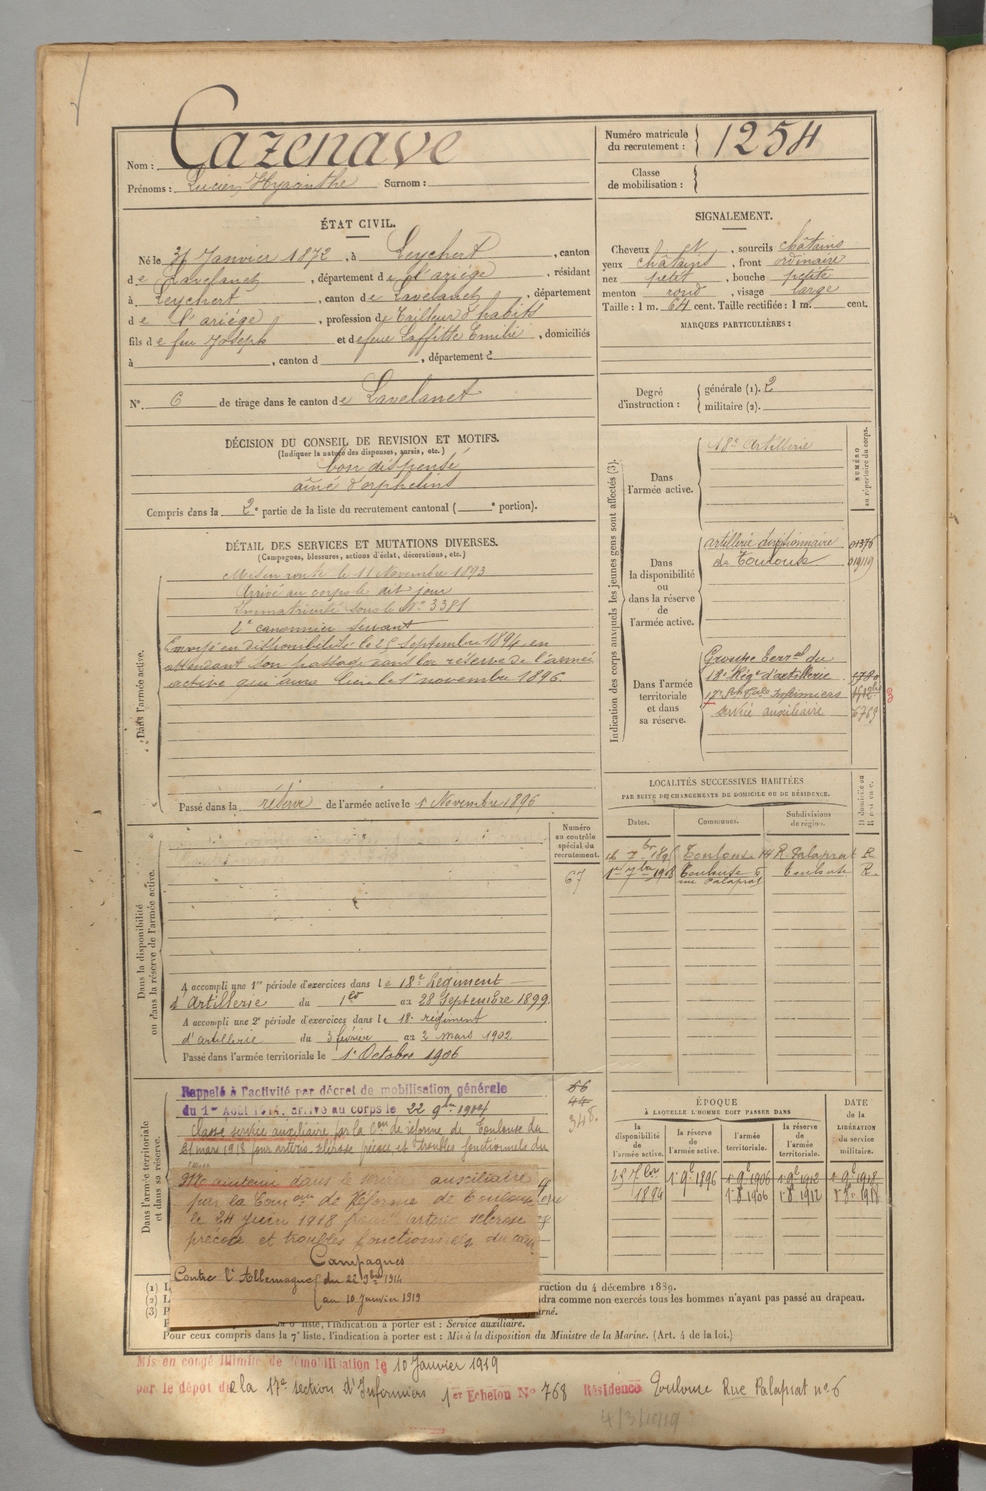 Nom : Cazenave
Prénoms : Lucien Hyacinthe Surnom :
Numéro matricule du recrutement : 1254
Classe de mobilisation :
ÉTAT CIVIL.
Né le 31 Janvier 1872, à Leychert, canton
de Lavelanet, département de l'ariége, résidant
à Leychert, canton de Lavelanet, département
de l'ariége, profession de tailleur d'habits
fils de feu Joseph et de feue Laffitte Emilie, domiciliés
à , canton d , département d
N° 6 de tirage dans le canton de Lavelanet
SIGNALEMENT.
Cheveux , sourcils châtains
yeux châtains, front ordinaire
nez petit, bouche petite
menton rond, visage large
Taille : 1 m. 64 cent. Taille rectifiée : 1 m. cent.
MARQUES PARTICULIÈRES :
Degré d'instruction : générale (1). 2
militaire (2).
DÉCISION DU CONSEIL DE REVISION ET MOTIFS.
(Indiquer la nature des dispenses, sursis, etc.)
bon dispensé
aîné d'orphelins
Compris dans la 2e partie de la liste du recrutement cantonal ( e portion).
DÉTAIL DES SERVICES ET MUTATIONS DIVERSES.
(Campagnes, blessures, actions d'éclat, décorations, etc.)
Dans l'armée active.
Mis en route le 11 Novembre 1893
Arrivé au corps le dit jour
Immatriculé sous le N° 3381
2e canonnier servant
Envoyé en disponibilité le 25 Septembre 1894 en
attendant son passage dans la réserve de l'armée
active qui aura lieu le 1er novembre 1896.
Passé dans la réserve de l'armée active le 1 Novembre 1896
Indication des corps auxquels les jeunes gens sont affectés (3).
NUMÉRO au répertoire du corps.
Dans l'armée active.
18e Artillerie
Dans la disponibilité ou dans la réserve de l'armée active.
artillerie
de Toulouse
Dans l'armée territoriale et dans sa réserve.
Groupe terral du
18e Régt d'artillerie
17e Infirmiers
service auxiliaire 6769
LOCALITÉS SUCCESSIVES HABITÉES
PAR SUITE DE CHANGEMENTS DE DOMICILE OU DE RÉSIDENCE.
Dates. Communes. Subdivisions de région. D domicile ou R résidence.
7bre Toulouse 14 R. Palaprat R
1er 7bre 1908 Toulouse 6 rue Palaprat Toulouse R.
Dans la disponibilité ou dans la réserve de l'armée active.
Numéro au contrôle spécial du recrutement.
67
A accompli une 1re période d'exercices dans le 18e Régiment
d'Artillerie du 1er au 28 Septembre 1899
A accompli une 2e période d'exercices dans le 18e régiment
d'artillerie du 3 février au 2 mars 1902
Passé dans l'armée territoriale le 1er Octobre 1906
Dans l'armée territoriale et dans sa réserve.
Rappelé à l'activité par décret de mobilisation générale
du 1er Août 1914, arrivé au corps le 22 9bre 1914
Classé service auxiliaire par la Con de réforme de Toulouse du
21 mars 1918 pour artério sclérose précoce et troubles fonctionnels du
66
44
348
Maintenu dans le service auxiliaire
par la Comon de Réforme de Toulouse
le 24 juin 1918 pour artério sclérose
précoce et troubles fonctionnels du cœur
Campagnes
Contre l'Allemagne du 22 9bre 1914
au 10 Janvier 1919
ÉPOQUE
À LAQUELLE L'HOMME DOIT PASSER DANS
la disponibilité de l'armée active. la réserve de l'armée active. l'armée territoriale. la réserve de l'armée territoriale.
DATE de la LIBÉRATION du service militaire.
1894 1896 1906 1912 1918
1906 1912
ruction du 4 décembre 1889.
dra comme non exercés tous les hommes n'ayant pas passé au drapeau.
liste, l'indication à porter est : Service auxiliaire.
Pour ceux compris dans la 7e liste, l'indication à porter est : Mis à la disposition du Ministre de la Marine. (Art. 4 de la loi.)
Mis en congé illimité de démobilisation le 10 Janvier 1919
par le dépôt de la 17e section d'Infirmiers 1er Echelon N° 768 Résidence Toulouse Rue Palaprat n° 6
4/3/1919